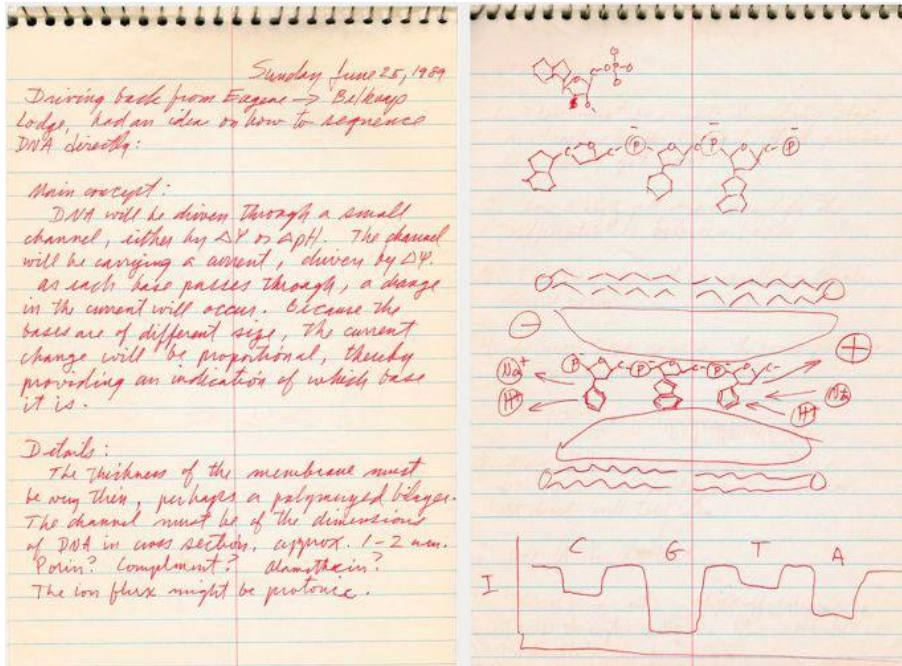 Sunday June 25, 1989
Driving back from Eugene → Belknap
Lodge, had an idea on how to sequence
DNA directly:
Main concept:
DNA will be driven through a small
channel, either by ΔΨ or ΔpH. The channel
will be carrying a current, driven by ΔΨ.
As each base passes through, a change
in the current will occur. Because the
bases are of different size, the current
change will be proportional, thereby
providing an indication of which base
it is.
Details:
The thickness of the membrane must
be very thin, perhaps a polymerized bilayer.
The channel must be of the dimensions
of DNA in cross section, approx. 1-2 nm.
Porin? Complement? Alamethicin?
The ion flux might be protonic.
O
C-O-P-O
O
O
C- P - C- P - C- P
- +
P C- P - C- P C-
Na+ Na+
H+ H+
C G T A
I